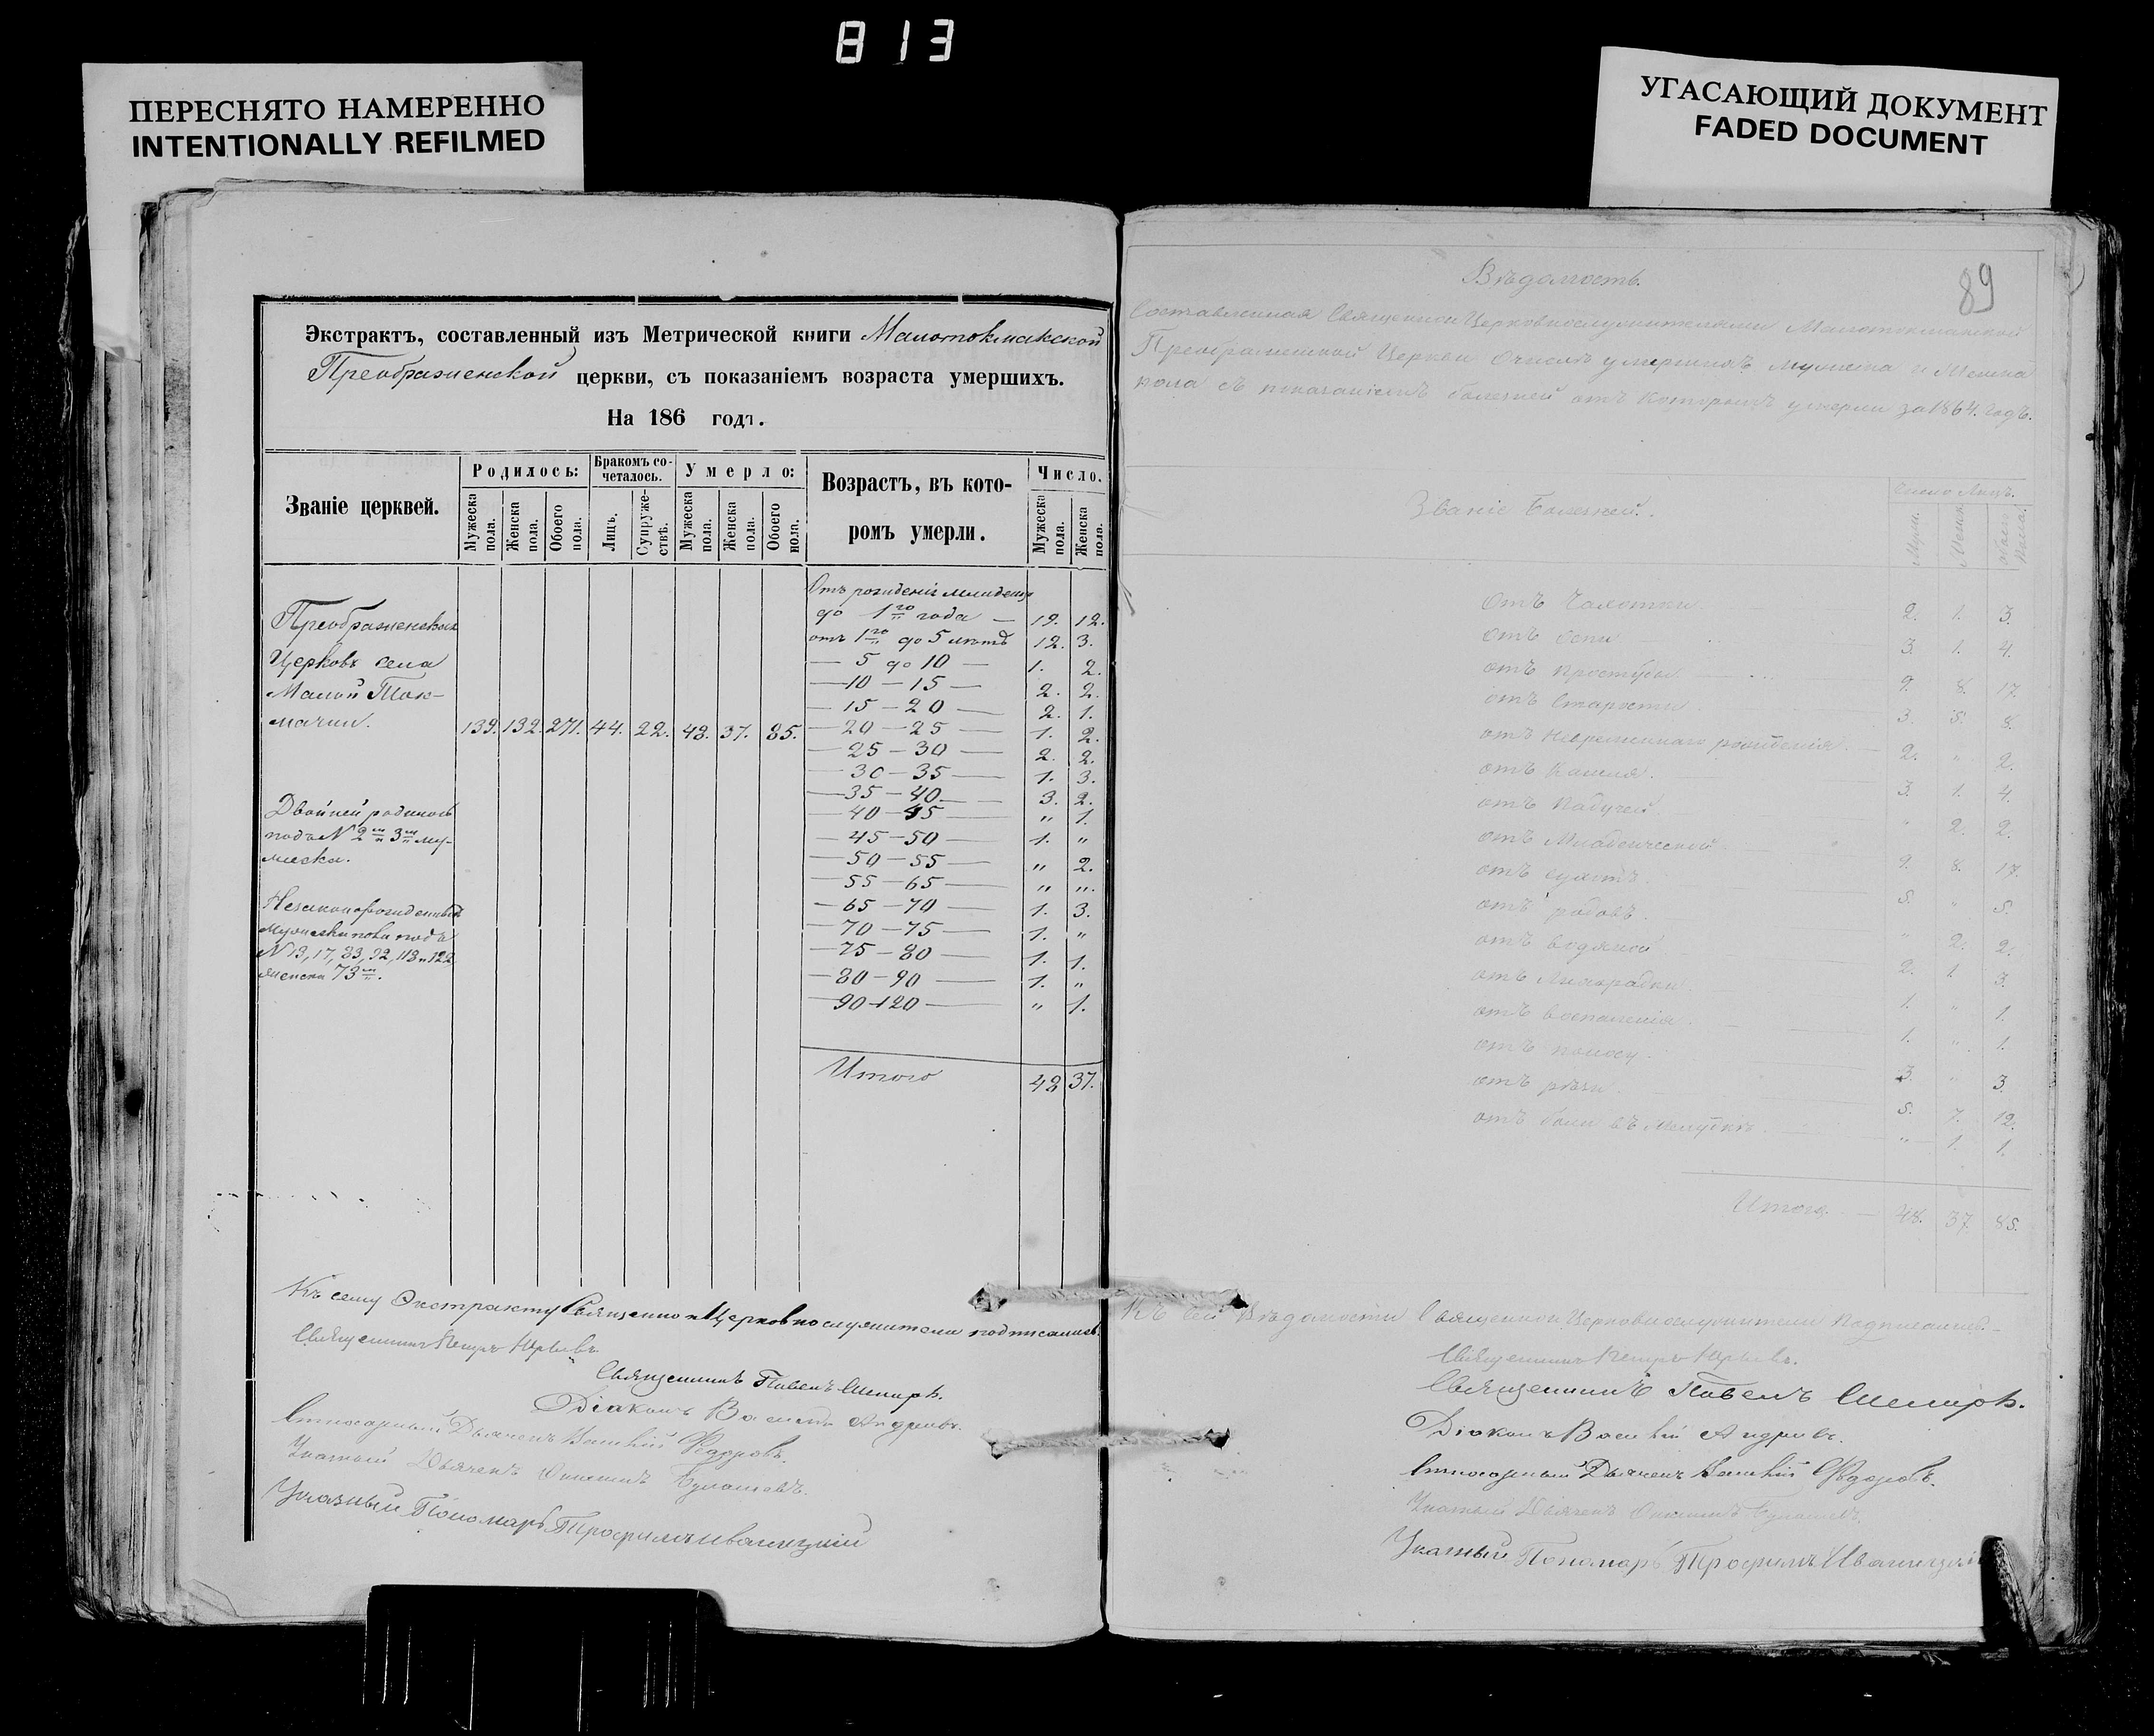 813
ПЕРЕСНЯТО НАМЕРЕННО
INTENTIONALLY REFILMED
УГАСАЮЩИЙ ДОКУМЕНТ
FADED DOCUMENT
Экстрактъ, составленный изъ Метрической книги Малотокмакской
Преображенской церкви, съ показаніемъ возраста умершихъ.
На 186 годъ.
Званіе церквей.
Родилось:
Мужеска пола.
Женска пола.
Обоего пола.
Бракомъ со-
четалось.
Лицъ.
Супруже-
ствъ.
Умерло:
Мужеска пола.
Женска пола.
Обоего пола.
Возрастъ, въ кото-
ромъ умерли.
Число.
Мужеска пола.
Женска пола.
Преображенская
Церковь села
Малой Ток-
мачки. 139. 132. 271. 44. 22. 48. 37. 85.
Двойней родилось
подъ N 2м 3м му-
жеска.
Незаконорожденныхъ
Мужеска пола подъ
N 13, 17, 83, 92, 113 и 122
женска 73м.
Отъ рожденія
до 1го года — 19. 12.
отъ 1го до 5 лѣтъ 12. 3.
— 5 до 10 — 1. 2.
— 10 — 15 — 2. 2.
— 15 — 20 — 2. 1.
— 20 — 25 — 1. 2.
— 25 — 30 — 2. 2.
— 30 — 35 — 1. 3.
— 35 — 40 — 3. 2.
— 40 — 45 — " 1.
— 45 — 50 — 1. "
— 50 — 55 — " 2.
— 55 — 65 — " ".
— 65 — 70 — 1. 3.
— 70 — 75 — 1. "
— 75 — 80 — 1. 1.
— 80 — 90 — 1. "
— 90 — 120 — " 1.
Итого 48 37.
Къ сему Экстракту Священно и Церковнослужители подписались.
Священникъ Петръ
Священникъ Павелъ
Діаконъ Василій
Дьячекъ Василій Ѳедоровъ.
Указный Дьячекъ
Указный Пономарь Трофимъ Иваницкій
89
Вѣдомость.
Составленная Священно и Церковнослужителями Малотокмакской
Преображенской Церкви о числѣ умершихъ мужеска и Женска
пола съ показаніемъ болезней отъ которыхъ умерли за 1864. годъ.
Званіе Болезней.
Число Лицъ.
Отъ Чахотки 2. 1. 3.
отъ оспы 3. 1. 4.
отъ простуды 9. 8. 17.
отъ Старости 3. 5. 8.
отъ рожденія 2. " 2.
отъ Кашля. 3. 1. 4.
отъ Падучей " 2. 2.
отъ Младенческой 9. 8. 17.
отъ сухотъ. 5. " 5.
отъ родовъ. " 2. 2.
отъ водяной 2. 1 3.
отъ Лихорадки 1. " 1.
отъ воспаленія 1. " 1.
отъ поносу. 3. " 3
отъ рѣзи. 5. 7. 12.
отъ боли въ Желудкѣ " 1. 1.
Итого 48. 37 85.
Къ сей Вѣдомости Священно и Церковнослужители Подписались.
Священникъ Петръ
Священникъ Павелъ
Діаконъ Василій
Дьячекъ Василій Ѳедоровъ.
Указный Дьячекъ
Указный Пономарь Трофимъ